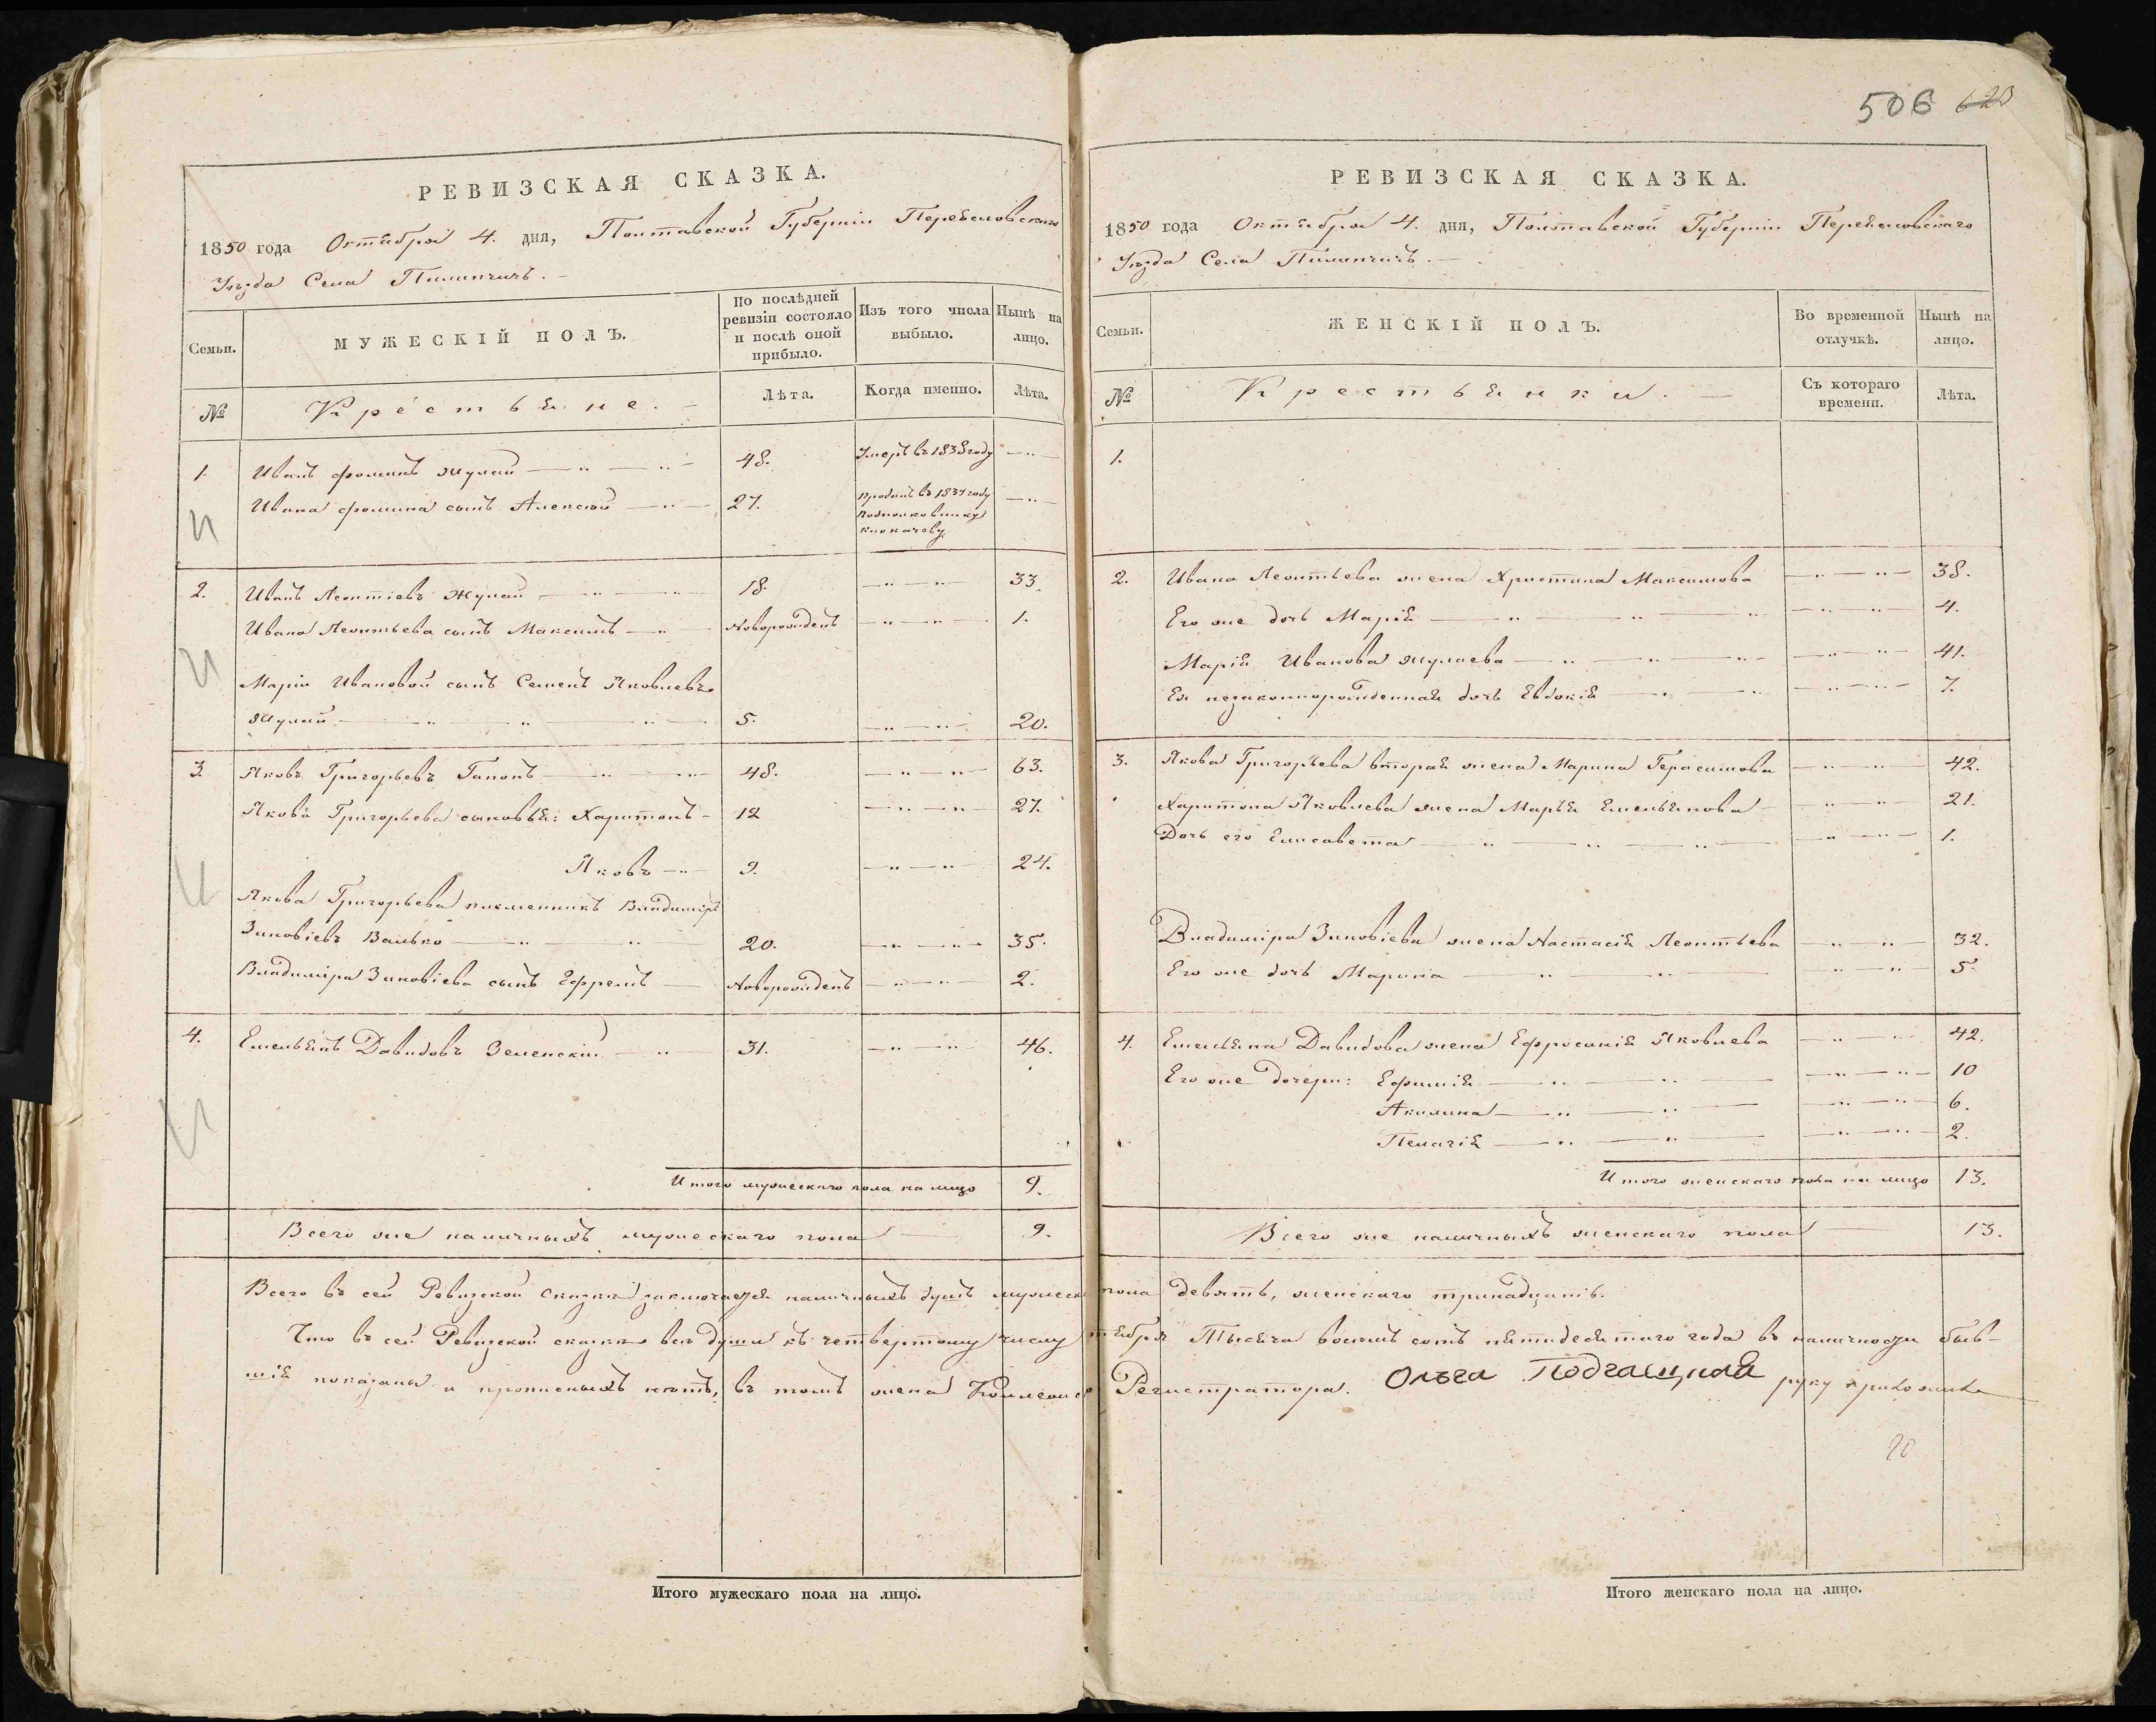 506 623
РЕВИЗСКАЯ СКАЗКА.
1850 года Октября 4. дня, Полтавской Губерніи Переяславскаго
Уѣзда Села Пилипчичъ.
Семьи.
МУЖЕСКІЙ ПОЛЪ.
По послѣдней ревизіи состояло и послѣ оной прибыло.
Изъ того числа выбыло.
Нынѣ на лицо.
№
Крестьяне.
Лѣта.
Когда именно.
Лѣта.
1. Иванъ Фоминъ Жулай 48. Умеръ въ 1838 году
Ивана Фомина сынъ Алексѣй 27. Проданъ въ 1837 году
подполковнику
Клокачеву
2. Иванъ Леонтіевъ Жулай 18. 33.
Ивана Леонтьева сынъ Максимъ Новорожденъ 1.
Маріи Ивановой сынъ Семенъ Яковлевъ
Жулай 5. 20.
3. Яковъ Григорьевъ Гапонъ 48. 63.
Якова Григорьева сыновья: Харитонъ 12 27.
Яковъ 9. 24.
Якова Григорьева племянникъ Владиміръ
Зиновіевъ Валько 20. 35.
Владиміра Зиновіева сынъ Ефремъ Новорожденъ 2.
4. Емельянъ Давидовъ Зеленскій 31. 46.
Итого мужескаго пола на лицо 9.
Всего же наличныхъ мужескаго пола 9.
РЕВИЗСКАЯ СКАЗКА.
1850 года Октября 4. дня, Полтавской Губерніи Переяславскаго
Уѣзда Села Пилипчичъ.
Семьи.
ЖЕНСКІЙ ПОЛЪ.
Во временной отлучкѣ.
Нынѣ на лицо.
№
Крестьянки.
Съ котораго времени.
Лѣта.
1.
2. Ивана Леонтьева жена Христина Максимова 38.
Его же дочь Марія 4.
Марія Иванова Жулаева 41.
Ея незаконнорожденная дочь Евдокія 7.
3. Якова Григорьева вторая жена Марина Герасимова 42.
Харитона Яковлева жена Марья Емельянова 21.
Дочь его Елисавета 1.
Владиміра Зиновіева жена Настасія Леонтьева 32.
Его же дочь Марина 5.
4. Емельяна Давидова жена Ефросинія Яковлева 42.
Его же дочери: Ефимія 10
Акилина 6.
Пелагія 2.
Итого женскаго пола на лицо 13.
Всего же наличныхъ женскаго пола 13.
Всего въ сей Ревизской Сказкѣ заключается наличныхъ душъ мужеск пола девять, женскаго тринадцать.
Что въ сей Ревизской сказкѣ всѣ души къ четвертому числу тября Тысяча восемъ сотъ пятидесятаго года въ наличности быв-
шія показаны и прописныхъ нѣтъ, въ томъ жена Коллежс Регистратора. Ольга Подгаецкая руку приложила
Итого мужескаго пола на лицо.
Итого женскаго пола на лицо.